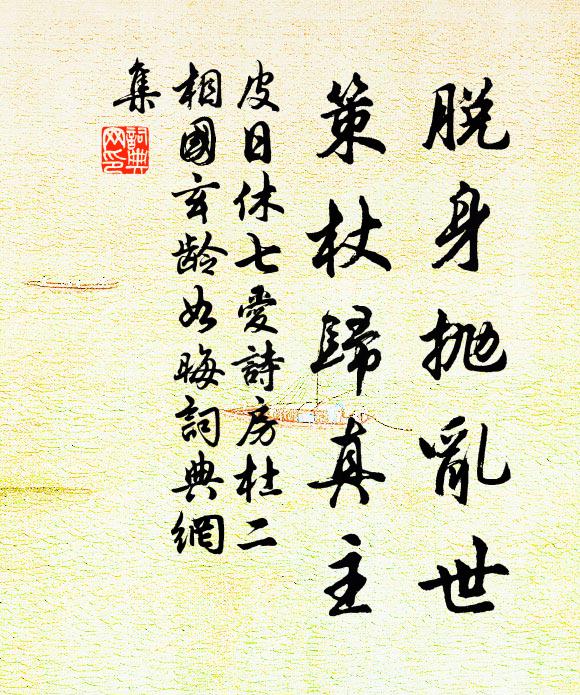 脫身抛亂世
策杖歸真主
皮日休七愛詩房杜二
相國玄齡如晦詞典網
集
詞典
网印